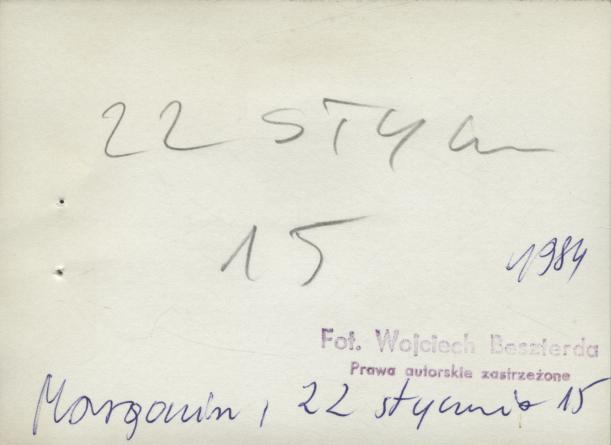 22 stycz
15
1984
Fot. Wojciech Beszterda
Prawa autorskie zastrzeżone
Margonin, 22 stycznia 15